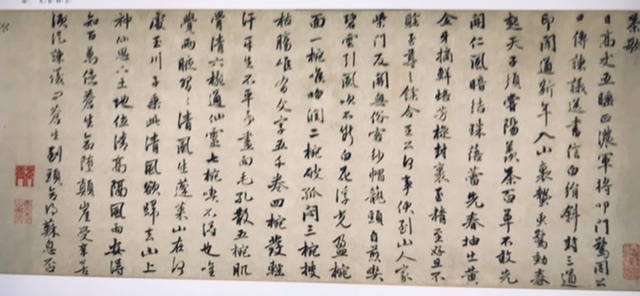 茶歌
日高丈五睡正濃軍將叩門驚周公
口傳諫議送書信白絹斜封三道
印聞道新年入山裏蟄虫驚動春
起天子須嘗陽羨茶百草不敢先
開仁風暗結珠蓓蕾先春抽出黃
金牙摘鮮焙芳旋封裹至精至好且不
奢至尊之餘合王公何事便到山人家
柴門反關無俗客紗帽籠頭自煎喫
碧雲引風吹不斷白花浮光凝椀
面一椀喉吻潤二椀破孤悶三椀搜
枯腸唯有文字五千卷四椀發輕
汗平生不平事盡向毛孔散五椀肌
骨清六椀通仙靈七椀喫不得也唯
覺兩腋習習清風生蓬萊山在何
處玉川子乘此清風欲歸去山上
神仙司下土地位清高隔風雨安得
知百萬億蒼生命墮顛崖受辛苦
便從諫議問蒼生到頭合得蘇息否